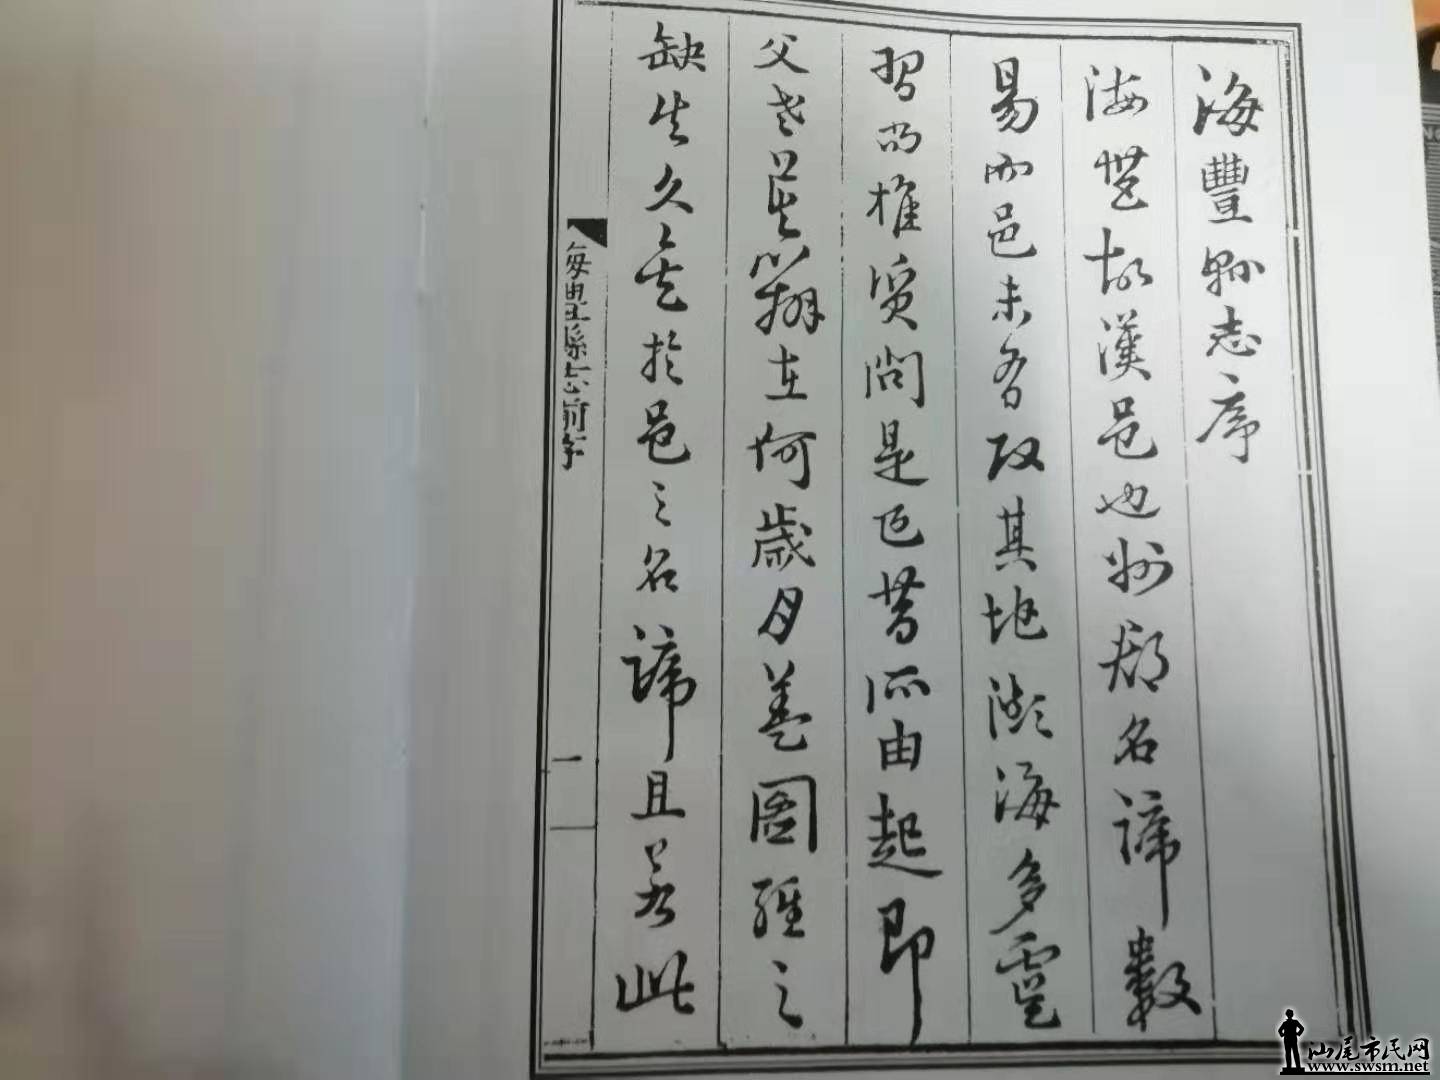 海豐縣志序
海豐故漢邑也州郡名諦數
易而邑未有改其地瀕海多
習而榷 質問是邑昔所由起即
父老莫 在何歲月蓋圖經之
缺失久矣於邑之名諦且若此
海豐縣志前序
一
汕尾市民网
www.swsm.net